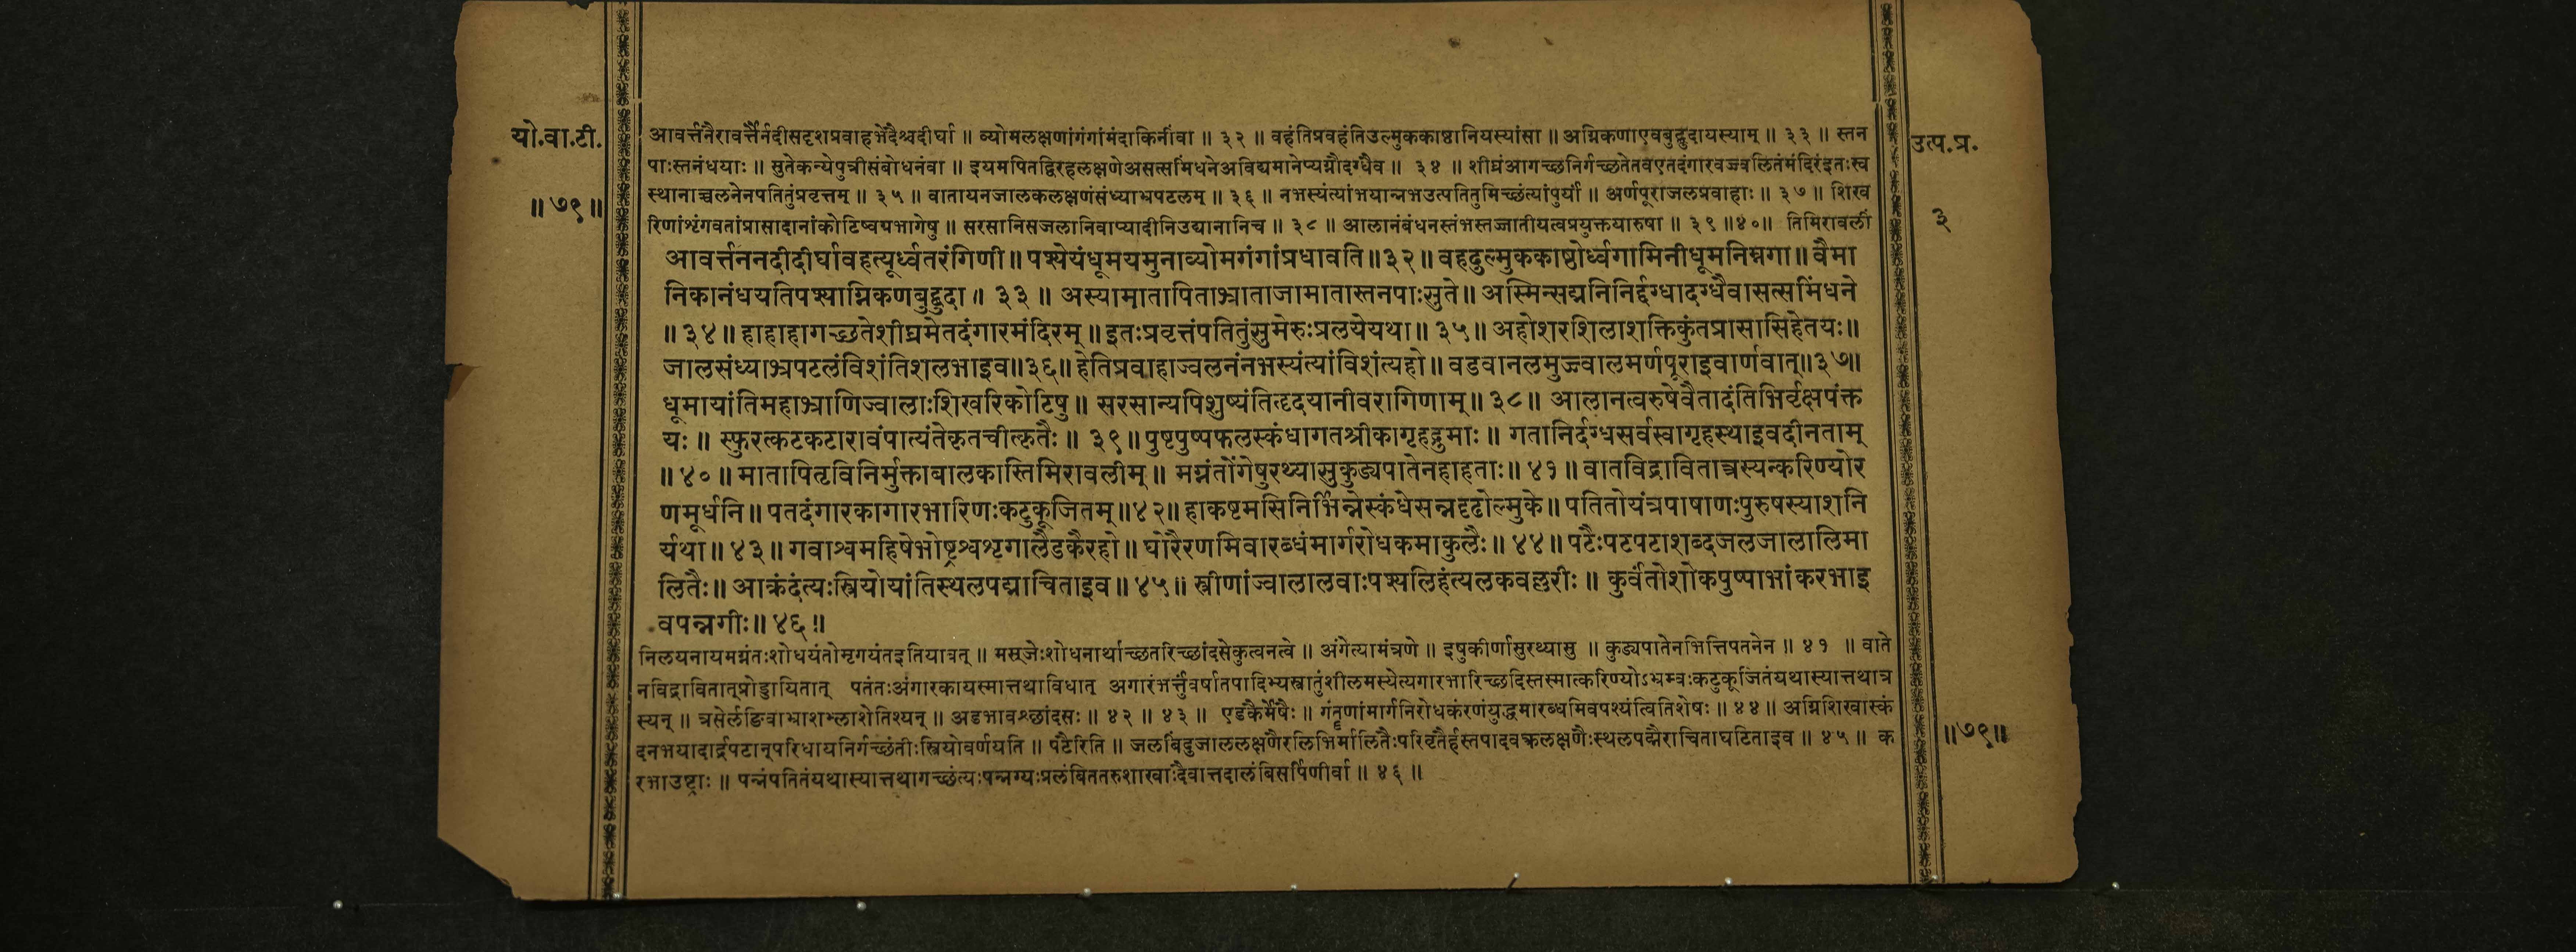 यो.वा.टी.
॥७९॥
उत्प.प्र.
३
आवर्त्तनैरावर्त्तैर्नदीसदृशप्रवाहभेदैश्चदीर्घा ॥ व्योमलक्षणांगंगांमंदाकिनींवा ॥ ३२ ॥ वहंतिप्रवहंतिउल्मुककाष्ठानियस्यांसा ॥ अग्निकणाएवबुद्बुदायस्याम् ॥ ३३ ॥ स्तन
पाःस्तनंधयाः ॥ सुतेकन्येपुत्रीसंबोधनंवा ॥ इयमपितद्विरहलक्षणेअसत्समिंधनेअविद्यमानेप्यग्नौदग्धैव ॥ ३४ ॥ शीघ्रंआगच्छनिर्गच्छतेतवएतदंगारवज्ज्वलितंमंदिरंइतःस्व
स्थानाच्चलनेनपतितुंप्रवृत्तम् ॥ ३५ ॥ वातायनजालकलक्षणंसंध्याभ्रपटलम् ॥ ३६ ॥ नभस्यंत्यांभयान्नभउत्पतितुमिच्छंत्यांपुर्यां ॥ अर्णपूराजलप्रवाहाः ॥ ३७ ॥ शिख
रिणांशृंगवतांप्रासादानांकोटिष्वग्रभागेषु ॥ सरसानिसजलानिवाप्यादीनिउद्यानानिच ॥ ३८ ॥ आलानंबंधनस्तंभस्तज्जातीयत्वप्रयुक्तयारुषा ॥ ३९ ॥४०॥ तिमिरावलीं
आवर्त्तननदीदीर्घावहत्यूर्ध्वतरंगिणी ॥ पश्येयंधूमयमुनाव्योमगंगांप्रधावति ॥३२॥ वहदुल्मुककाष्ठोर्ध्वगामिनीधूमनिम्नगा ॥ वैमा
निकानंधयतिपश्याग्निकणबुद्बुदा ॥ ३३ ॥ अस्यामातापिताभ्राताजामातास्तनपाःसुते ॥ अस्मिन्सद्मनिनिर्द्दग्धादग्धैवासत्समिंधने
॥ ३४ ॥ हाहाहागच्छतेशीघ्रमेतदंगारमंदिरम् ॥ इतःप्रवृत्तंपतितुंसुमेरुःप्रलयेयथा ॥ ३५ ॥ अहोशरशिलाशक्तिकुंतप्रासासिहेतयः ॥
जालसंध्याभ्रपटलंविशंतिशलभाइव॥३६॥ हेतिप्रवाहाज्वलनंनभस्यंत्यांविशंत्यहो ॥ वडवानलमुज्ज्वालमर्णपूराइवार्णवात्॥३७॥
धूमायांतिमहाभ्राणिज्वालाःशिखरिकोटिषु ॥ सरसान्यपिशुष्यंतिहृदयानीवरागिणाम् ॥ ३८ ॥ आलानत्वरुषेवैतादंतिभिर्वृक्षपंक्त
यः ॥ स्फुरत्कटकटारावंपात्यंतेकृतचीत्कृतैः ॥ ३९ ॥ पुष्टपुष्पफलस्कंधागतश्रीकागृहद्रुमाः ॥ गतानिर्दग्धसर्वस्वागृहस्थाइवदीनताम्
॥ ४० ॥ मातापितृविनिर्मुक्ताबालकास्तिमिरावलीम् ॥ मग्नंतोंगेषुरथ्यासुकुड्यपातेनहाहताः ॥ ४१ ॥ वातविद्रावितात्त्रस्यन्करिण्योर
णमूर्धनि ॥ पतदंगारकागारभारिणःकटुकूजितम् ॥४२॥ हाकष्टमसिनिर्भिन्नेस्कंधेसन्नदृढोल्मुके ॥ पतितोयंत्रपाषाणःपुरुषस्याशनि
र्यथा ॥ ४३ ॥ गवाश्वमहिषेभोष्ट्रश्वशृगालैडकैरहो ॥ घोरैरणमिवारब्धंमार्गरोधकमाकुलैः ॥ ४४ ॥ पटैःपटपटाशब्दजलजालालिमा
लितैः ॥ आक्रंदंत्यःस्त्रियोयांतिस्थलपद्माचिताइव ॥ ४५ ॥ स्त्रीणांज्वालालवाःपश्यलिहंत्यलकवल्लरीः ॥ कुर्वंतोशोकपुष्पाभांकरभाइ
वपन्नगीः ॥ ४६ ॥
निलयनायमग्नंतःशोधयंतोमृगयंतइतियावत् ॥ मस्जेःशोधनार्थाच्छतरिच्छांदसेकुत्वनत्वे ॥ अंगेत्यामंत्रणे ॥ इषुकीर्णासुरथ्यासु ॥ कुड्यपातेनभित्तिपतनेन ॥ ४१ ॥ वाते
नविद्रावितात्प्रोड्डायितात् पतंतःअंगारकायस्मात्तथाविधात् अगारंभर्त्तुंवर्षातपादिभ्यस्त्रातुंशीलमस्येत्यगारभारिच्छदिस्तस्मात्करिण्योऽभ्रम्वःकटुकूजितंयथास्यात्तथात्र
स्यन् ॥ त्रसेर्लङिवाभ्राशभ्लाशेतिश्यन् ॥ अडभावश्छांदसः ॥ ४२ ॥ ४३ ॥ एडकैर्मेषैः ॥ गंतॄणांमार्गनिरोधकंरणंयुद्धमारब्धमिवपश्यंत्वितिशेषः ॥ ४४ ॥ अग्निशिखास्कं
दनभयादार्द्रपटान्परिधायनिर्गच्छंतीःस्त्रियोवर्णयति ॥ पटैरिति ॥ जलबिंदुजाललक्षणैरलिभिर्मालितैःपरिवृतैर्हस्तपादवक्त्रलक्षणैःस्थलपद्मैराचिताघटिताइव ॥ ४५ ॥ क
रभाउष्ट्राः ॥ पन्नंपतितंयथास्यात्तथागच्छंत्यःपन्नग्यःप्रलंबिततरुशाखाःदैवात्तदालंबिसर्पिणीर्वा ॥ ४६ ॥
॥७९॥